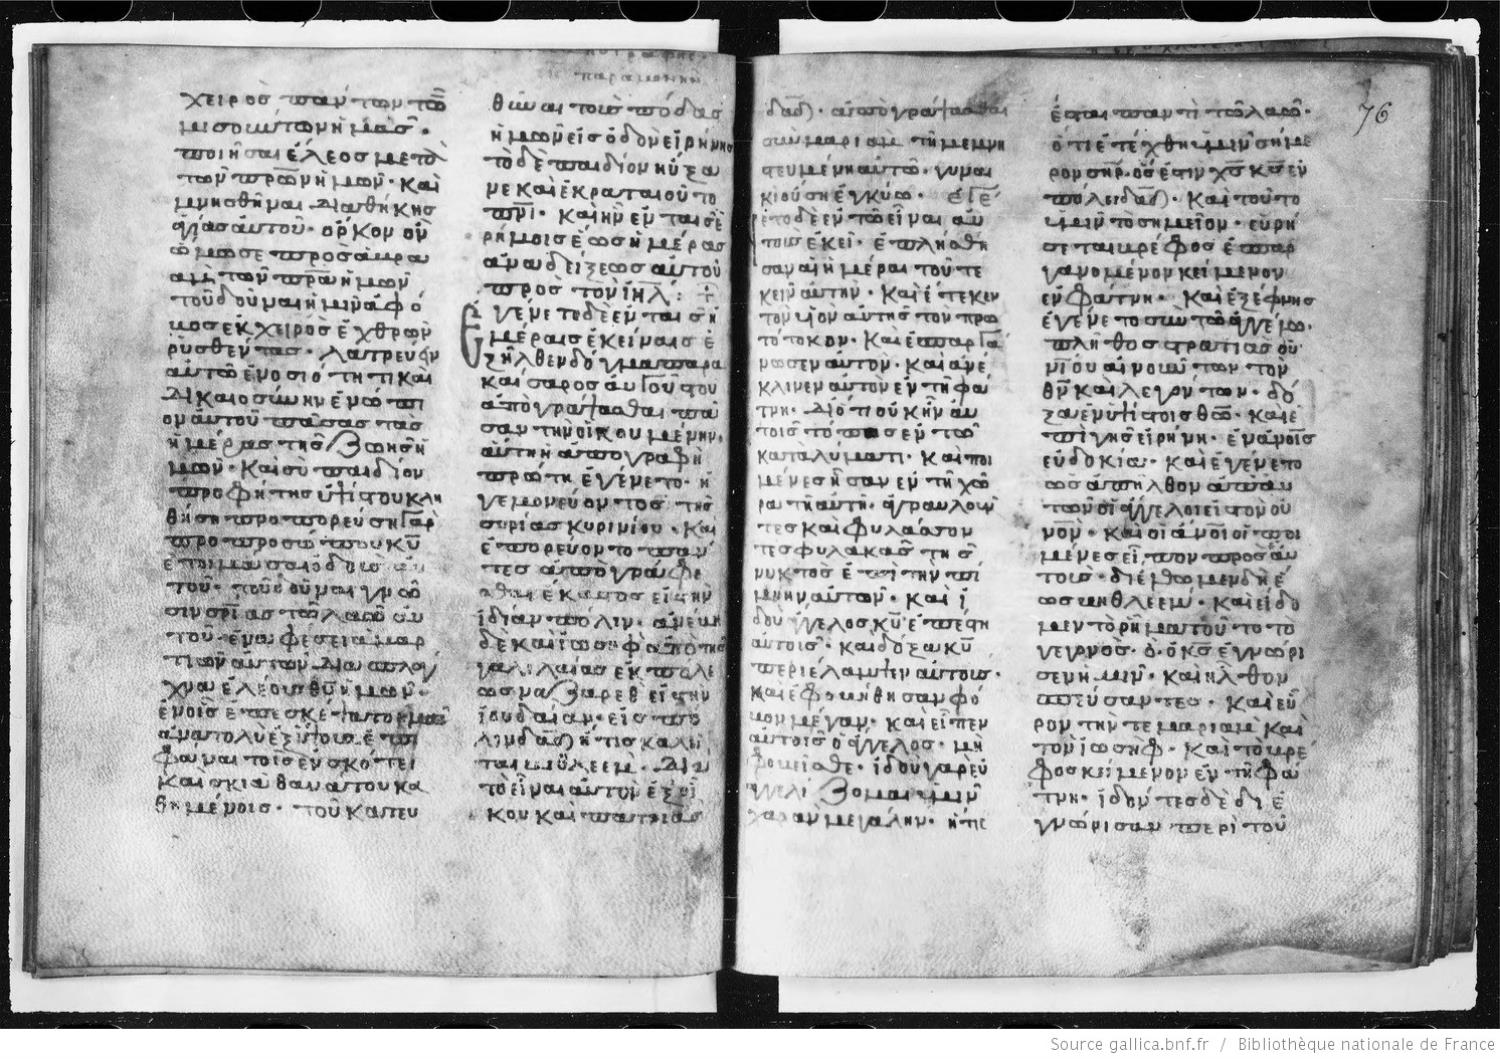 χειρος παντων των
μισουντων ημας·
ποιησαι ἔλεος μετα
των πρ̅ων ἡμων· και
μνησθηναι διαθήκης
ἁγίας αυτου· ὅρκον ὃν
ὤμοσε προς ἀβρα
αμ τον πρ̅α ἡμων
του δουναι ἡμιν ἀφό
βως ἐκ χειρὸς ἐχθρῶν
ρυσθεντας· λατρευειν
αυτω ἐν οσιότητι και
δικαιοσύνη ἐνωπι
ον αυτου πασας τας
ημερας της ζωης ἡ
μων· Και συ παιδίον
προφήτης ὑψιστου κλη
θηση προπορευση γαρ
προ προσωπου κυ̅
ετοιμασαι ὁδους αυ
του· του δουναι γνω
σιν σρ̅ιας τω λαω αυ
του· εν ἀφεσει ἁμαρ
τιων αυτων δια σπλαγ
χνα ἐλέους θυ̅ ἡμων·
ἐν οἷς ἐπεσκέψατο ἡμας
ἀνατολη ἐξ ὕψους ἐπι
φαναι τοις ἐν σκοτει
και σκια θανατου κα
θημένοις· του κατευ
θυναι τους πόδας
ἡμων εἰς ὁδὸν εἰρήνης
το δὲ παιδίον ηὔξα
νε και ἐκραταιουτο
πνι̅· και ην ἐν ταις ἐ
ρήμοις ἑως ἡμέρας
ἀναδείξεως αυτου
προς τὸν ιη̅λ:
Εγένετο δε εν ταις ἡ
μέραις ἐκείναις ἐ
ξηλθεν δόγμα παρα
καίσαρος αυγουστου
ἀπογράφεσθαι πα
σαν την οἰκουμένην·
αὕτη ἀπογραφὴ
πρώτη ἐγένετο· ἡ
γεμονεύοντος της
συρίας κυρινίου· Και
ἐπορεύοντο παν
τες ἀπογράφε
σθαι ἕκαστος εἰς την
ἰδίαν πόλιν· ἀνέβη
δὲ και ἰωσηφ ἀπὸ της
γαλιλαίας ἐκ πολε
ως ναζαρεθ εἰς την
ἰουδαίαν· εἰς πό
λιν δα̅δ ἥτις καλει
ται βηθλεεμ· δια
τὸ εἶναι αυτον ἐξ οἴ
κου και πατριας
δα̅δ· ἀπογράψασθαι
συν μαριαμ τη μεμνη
στευμένη αυτω· γυναι
κι ούση ἐγκύω· ἐγέ
ετο δὲ ἐν τω εἶναι αυ
τους ἐκει· ἐπλήσθη
σαν αι ἡμέραι του τε
κειν αυτην· και ἔτεκεν
τον υιον αυτης τον πρω
τότοκον· Και ἐσπαργα
νωσεν αυτον· και ανέ
κλινεν αυτον ἐν τη φα
τνη· διότι οὐκ ην αυ
τοις τόπος εν τω
καταλύματι· και ποι
μένες ησαν εν τη χω
ρα τη αυτη· ἀγραυλουν
τες και φυλασσον
τες φυλακας της
νυκτος ἐπι την ποι
μνην αυτων· Και ἰ
δου ἄγγελος κυ̅ ἐπέστη
αυτοις· και δόξα κυ̅
περιέλαμψεν αυτους·
Και ἐφοβήθησαν φό
βον μέγαν· και εἶπεν
αυτοις ὁ ἄγγελος· μη
φοβεισθε· ἰδου γαρ εὐ
αγγελίζομαι υμιν
χαραν μεγάλην· ἥτις
ἔσται παντὶ τω λαω·
ὅτι ἐτέχθη υμιν σήμε
ρον σηρ̅· ὅς ἐστιν χς̅ κς̅ ἐν
πόλει δα̅δ· Και τουτο
υμιν τὸ σημειον· εὑρή
σετε βρέφος ἐσπαρ
γανομένον κείμενον
ἐν φάτνη· και ἐξέφνης
ἐγένετο συν τω ἀγγέλω·
πληθος στρατιας οὐ
νίου αἰνουντων τον
θν̅ και λεγόντων· δό
ξα ἐν υψίστοις θω̅· και ἐ
πι γης εἰρήνη· ἐν ἀν̅οις
εὐδοκία· και ἐγένετο
ως ἀπηλθον ἀπ αυ
των οἱ ἄγγελοι εἰς τον οὐ
νον̅· και οι ἀν̅οι οι ποι
μένες εἶπον προς αλ
τους· διέλθωμεν δη ἑ
ως βηθλεεμ· και είδο
μεν το ρημα τουτο το
γεγονὸς· ὃ ὁ κς̅ ἐγνώρι
σεν ημιν· και ηλθον
σπεύσαντες· και ευ
ρον την τε μαριαμ και
τον ἰωσηφ· και το βρέ
φος κείμενον ἐν τη φα
τνη· ἰδόντες δὲ διε
γνώρισαν περὶ του
76
Source gallica.bnf.fr / Bibliothèque nationale de France